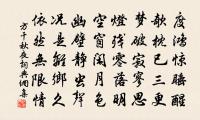 度鴻驚睡醒
欹枕已三更
夢破寂寥思
燈殘零落明
空窗閑月色
幽壁靜蟲聲
況是離鄉久
依然無限情
方干秋夜詞典網集